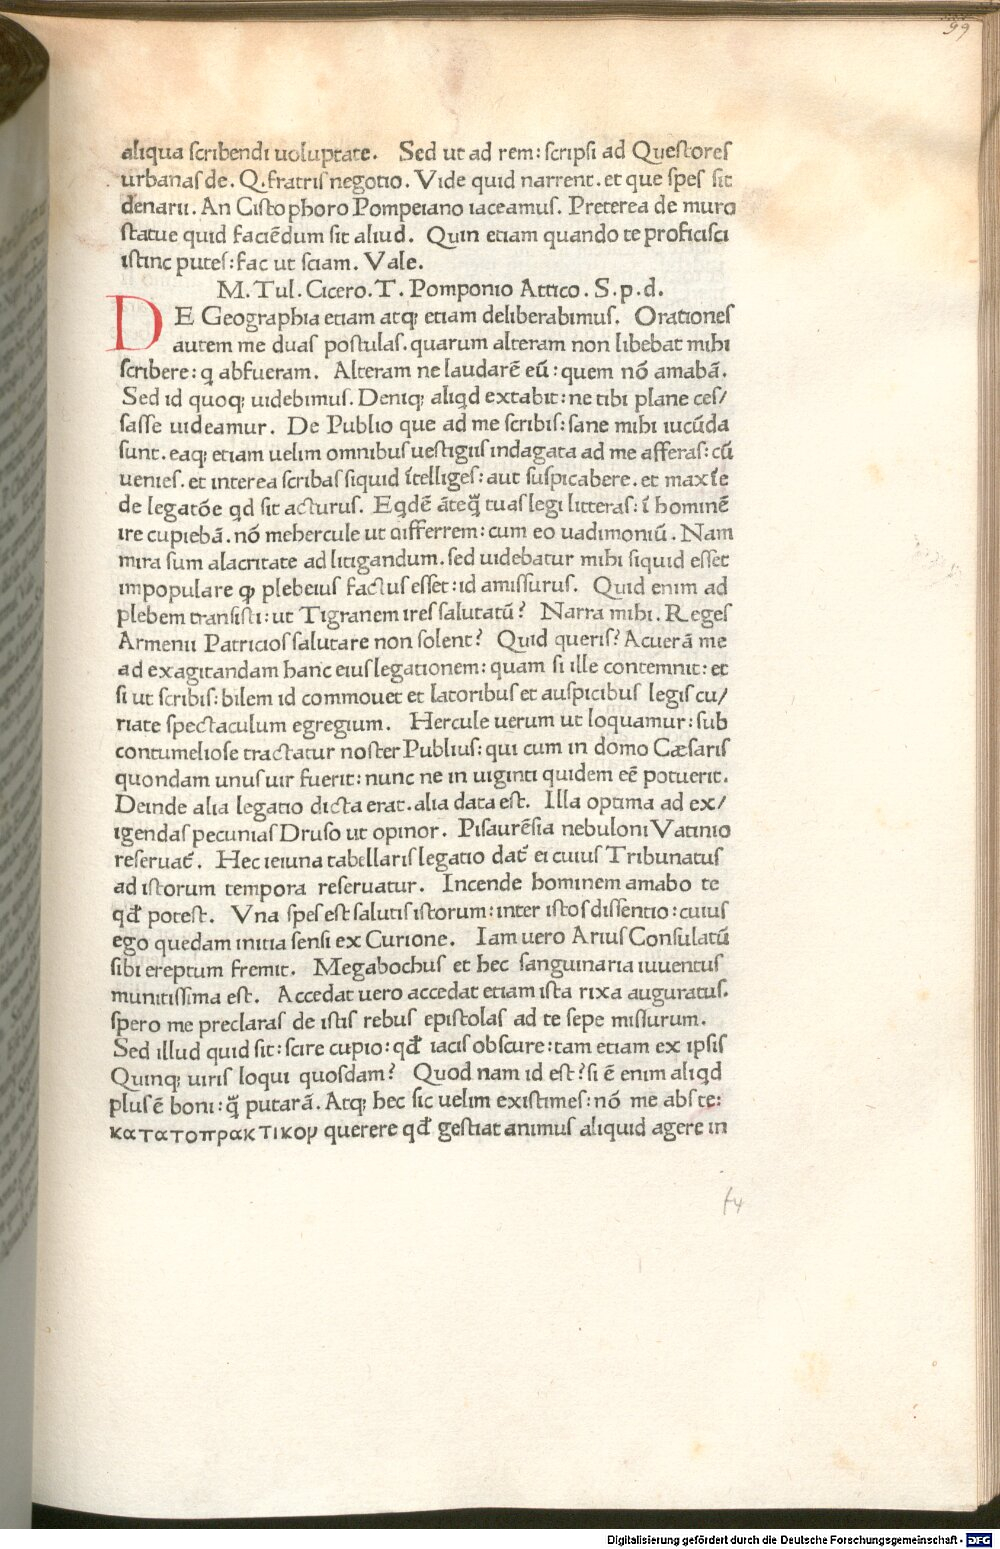 99
aliqua ſcribendi uoluptate. Sed ut ad rem: ſcripſi ad Queſtoreſ
urbanaſ de. Q. fratriſ negotio. Vide quid narrent. et que ſpeſ ſit
denarii. An Ciſtophoro Pompeiano iaceamuſ. Preterea de muro
ſtatue quid faciēdum ſit aliud. Quin etiam quando te proficiſci
iſtinc puteſ: fac ut ſciam. Vale.
M. Tul. Cicero. T. Pomponio Attico. S. p. d.
DE Geographia etiam atq; etiam deliberabimuſ. Orationeſ
autem me duaſ poſtulaſ. quarum alteram non libebat mihi
ſcribere: q abfueram. Alteram ne laudarē eū: quem nō amabā.
Sed id quoq; uidebimuſ. Deniq; aliqd extabit: ne tibi plane ceſ/
ſaſſe uideamur. De Publio que ad me ſcribiſ: ſane mihi iucūda
ſunt. eaq; etiam uelim omnibuſ ueſtigiiſ indagata ad me afferaſ: cū
uenieſ. et interea ſcribaſ ſiquid ītelligeſ: aut ſuſpicabere. et maxīe
de legatōe qd ſit acturuſ. Eqdē āteq̄ tuaſ legi litteraſ: ī hominē
ire cupiebā. nō mehercule ut differrem: cum eo uadimoniū. Nam
mira ſum alacritate ad litigandum. ſed uidebatur mihi ſiquid eſſet
impopulare ꝙ plebeiuſ factuſ eſſet: id amiſſuruſ. Quid enim ad
plebem tranſiſti: ut Tigranem ireſ ſalutatū? Narra mihi. Regeſ
Armenii Patricioſ ſalutare non ſolent? Quid queriſ? Acuerā me
ad exagitandam hanc eiuſ legationem: quam ſi ille contemnit: et
ſi ut ſcribiſ: bilem id commouet et latoribuſ et auſpicibuſ legiſ cu/
riate ſpectaculum egregium. Hercule uerum ut loquamur: ſub
contumelioſe tractatur noſter Publiuſ: qui cum in domo Cæſariſ
quondam unuſ uir fuerit: nunc ne in uiginti quidem eē potuerit.
Deinde alia legatio dicta erat. alia data eſt. Illa optima ad ex/
igendaſ pecuniaſ Druſo ut opinor. Piſaurēſia nebuloni Vatinio
reſeruat̄. Hec ieiuna tabellariſ legatio dat̄ ei cuiuſ Tribunatuſ
ad iſtorum tempora reſeruatur. Incende hominem amabo te
qd̄ poteſt. Vna ſpeſ eſt ſalutiſ iſtorum: inter iſtoſ diſſentio: cuiuſ
ego quedam initia ſenſi ex Curione. Iam uero Ariuſ Conſulatū
ſibi ereptum fremit. Megabochuſ et hec ſanguinaria iuuentuſ
munitiſſima eſt. Accedat uero accedat etiam iſta rixa auguratuſ.
ſpero me preclaraſ de iſtiſ rebuſ epiſtolaſ ad te ſepe miſſurum.
Sed illud quid ſit: ſcire cupio: qd̄ iaciſ obſcure: tam etiam ex ipſiſ
Quinq; uiriſ loqui quoſdam? Quod nam id eſt? ſi ē enim aliqd
pluſ ē boni: q̄ putarā. Atq; hec ſic uelim exiſtimeſ: nō me abſ te:
κατατοπρακτικον querere qd̄ geſtiat animuſ aliquid agere in
f4
Digitalisierung gefördert durch die Deutsche Forschungsgemeinschaft - DFG